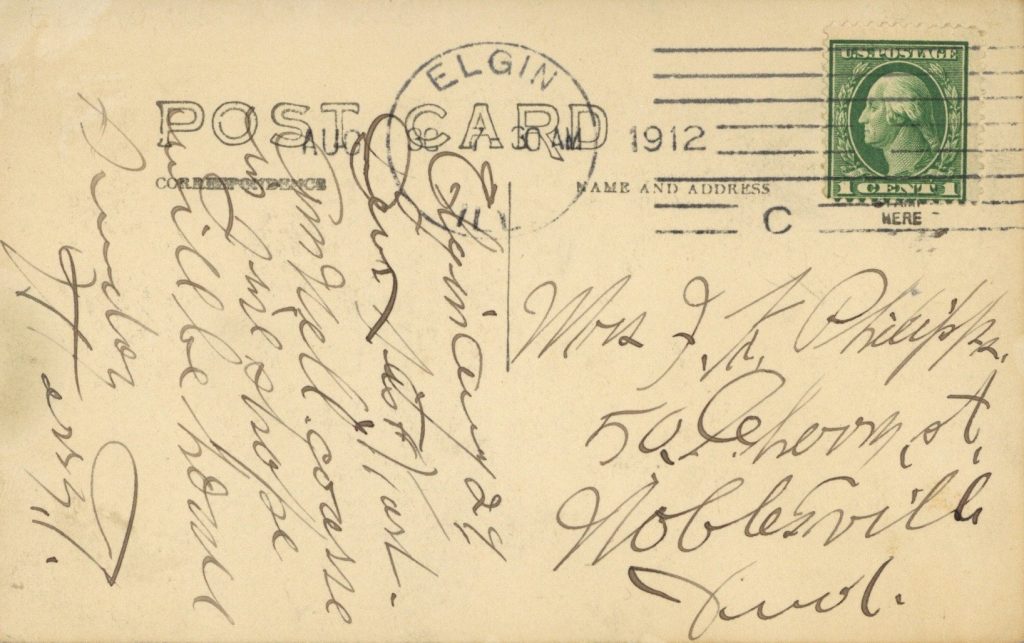 POST CARD
CORRESPONDENCE
NAME AND ADDRESS
ELGIN
AUG 30 7 30 AM
ILL
1912
C
U.S. POSTAGE
1 CENT 1
HERE
Elgin Aug 29
Dear
am well.
in fine shape
will be home
Sunday
Mrs J. K. Philipps.
50 Cherry, st,
Noblesville
Ind.